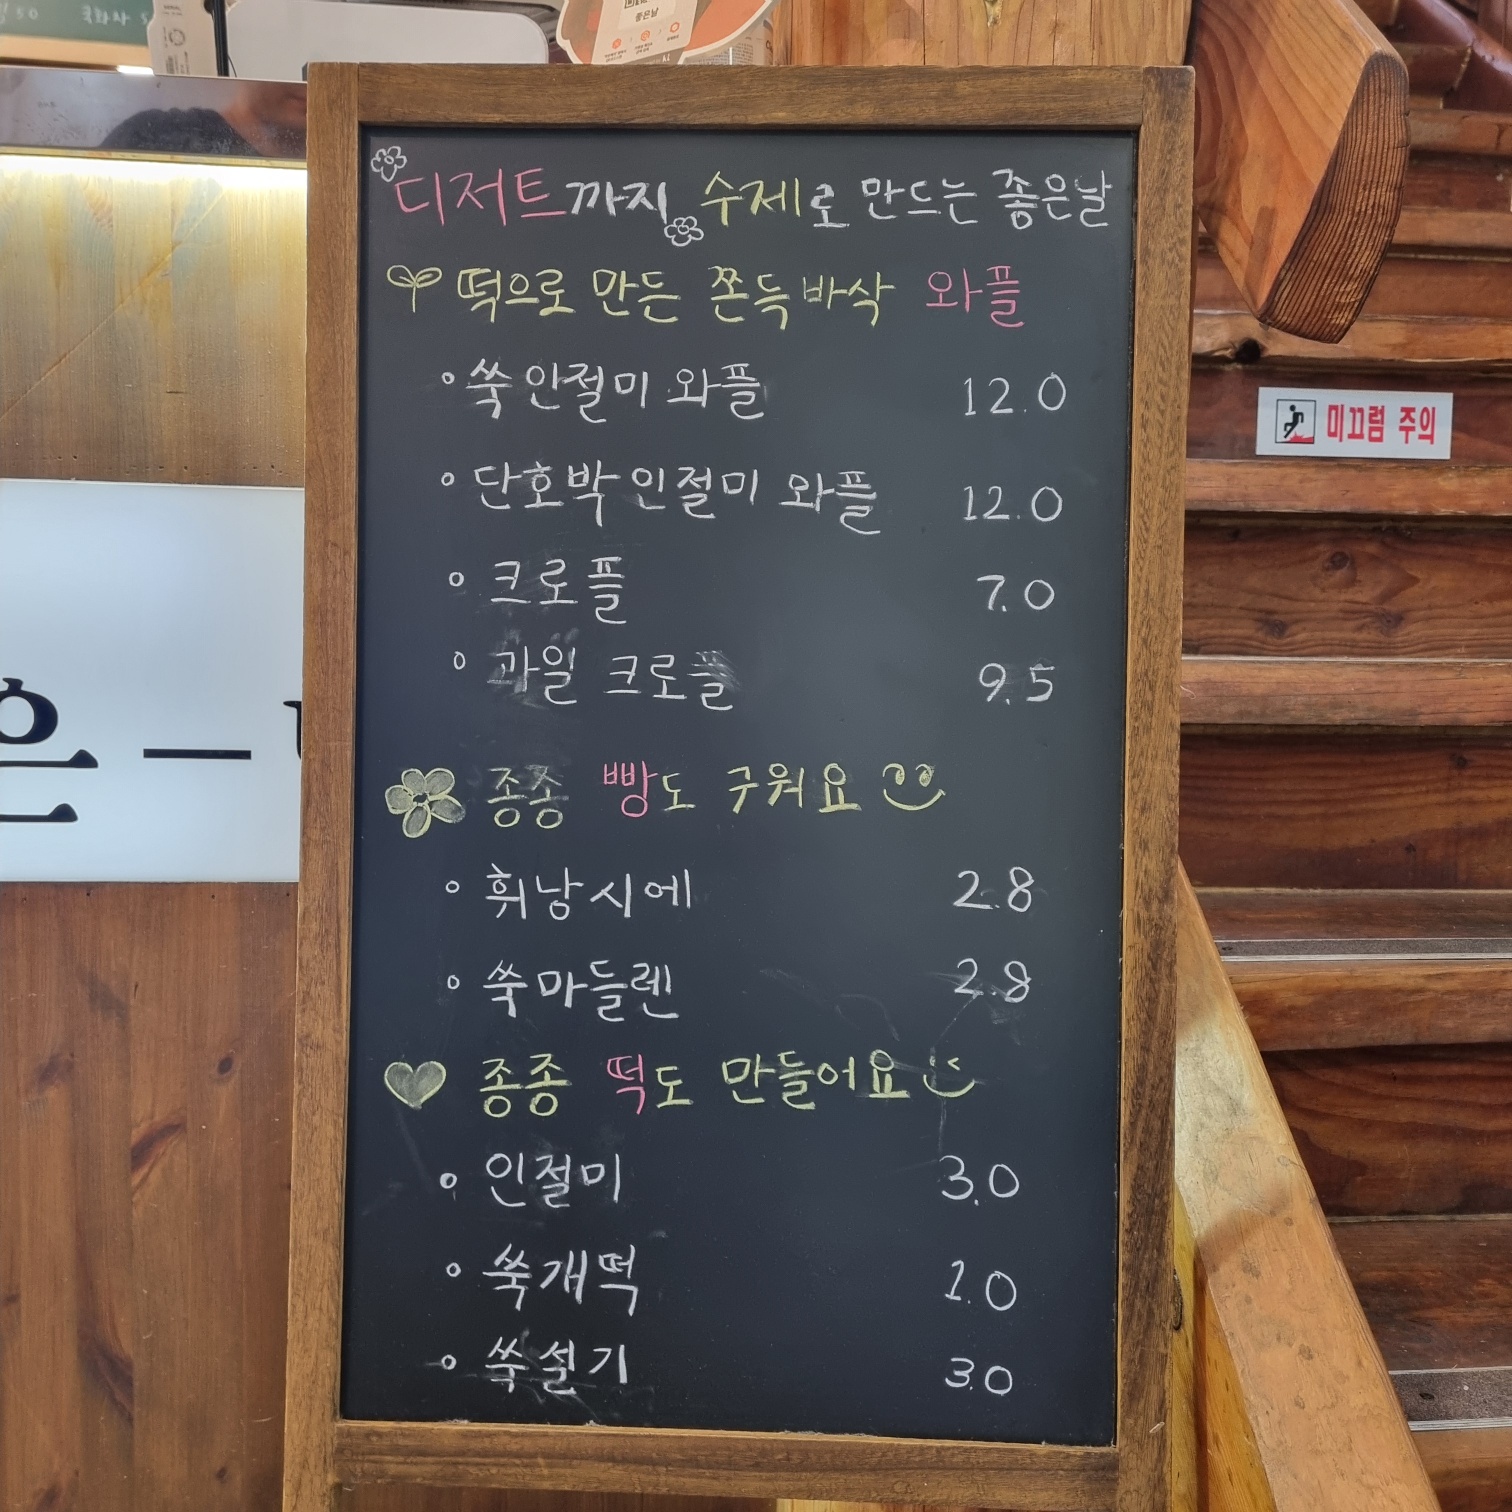 좋은날
디저트까지 수제로 만드는 좋은날
떡으로 만든 쫀득바삭 와플
쑥인절미 와플 12.0
단호박인절미 와플 12.0
크로플 7.0
과일 크로플 9.5
미끄럼 주의
종종 빵도 구워요
휘낭시에 2.8
쑥마들렌 2.8
종종 떡도 만들어요
인절미 3.0
쑥개떡 1.0
쑥설기 3.0